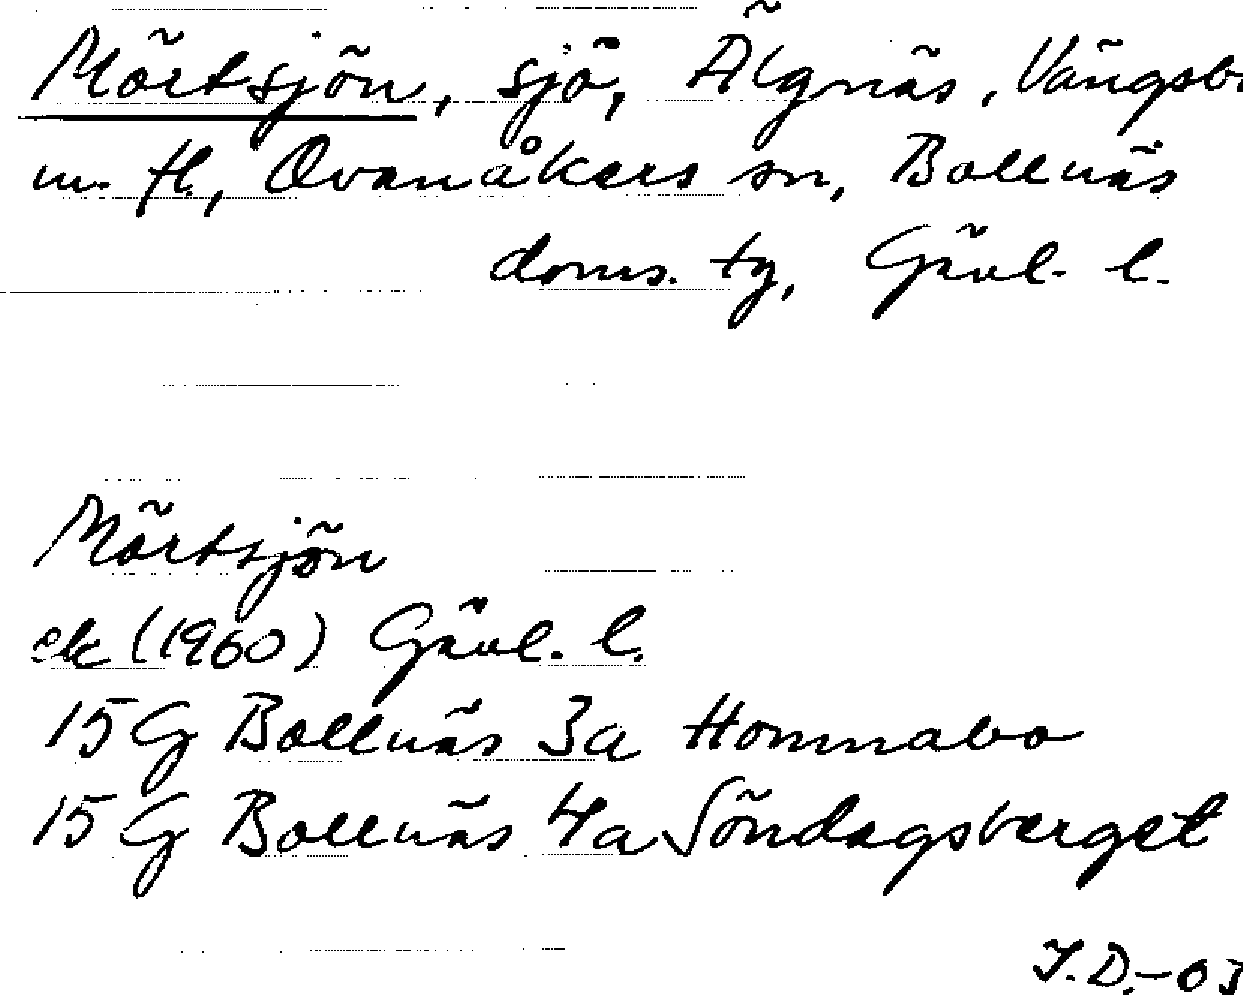 Mörtsjön, sjö, Älgnäs, Vängsbo
m. fl., Ovanåkers sn, Bollnäs
doms. tg, Gävl. l.
Mörtsjön
ek (1960) Gävl. l.
15 G Bollnäs 3a Homnabo
15 G Bollnäs 4a Söndagsberget
I.D.-03